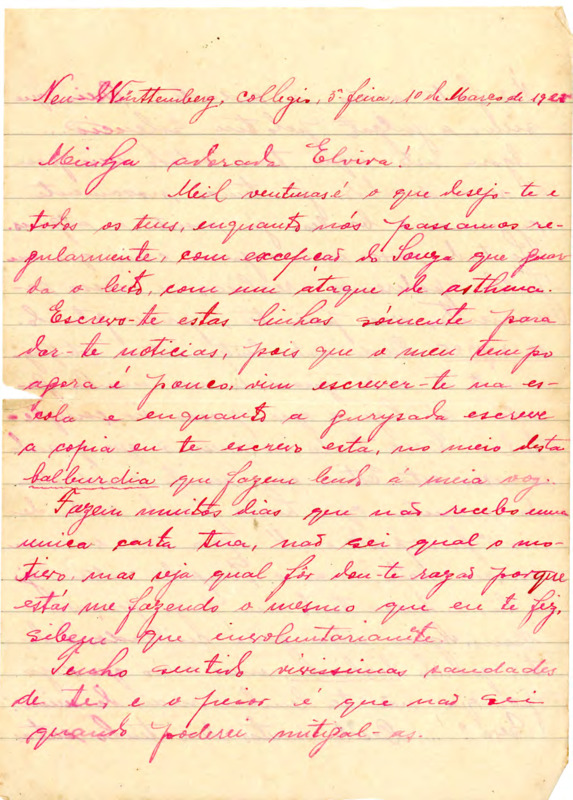 Neu Württemberg, collegio, 3ª feira, 10 de Março de 1925
Minha adorada Elvira!
Meil venturas é o que desejo-te e
todos os teus, enquanto nós passamos re-
gularmente, com excepção do Souza que guar-
da o leito, com um átaque de asthma.
Escrevo-te estas linhas sómente para
dar-te noticias, pois que o meu tempo
agora é pouco, vim escrever-te na es-
cóla e enquanto a gurysada escreve
a copia eu te escrevo esta, no meio desta
balburdia que fazem lendo á meia voz.
Fazem muitos dias que não recebo uma
unica carta tua, não sei qual o mo-
tivo, mas seja qual fôr dou-te razão porque
estás me fazendo o mesmo que eu te fiz,
sibem que involuntariante.
Tenho sentido vivissimas saudades
de ti, e o peior é que não sei
quando poderei mitigal-as.